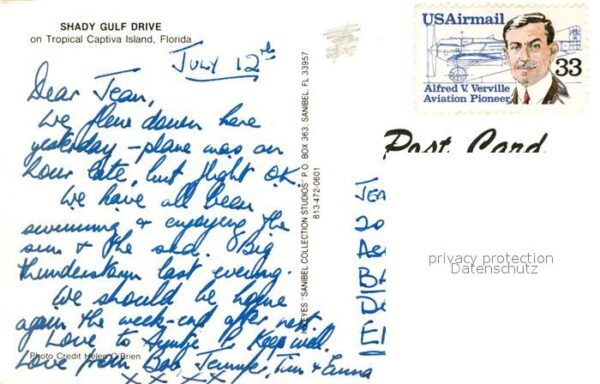 SHADY GULF DRIVE
on Tropical Captiva Island, Florida
July 12th
Dear Jean,
We flew down here
yesterday - plane was an
hour late, but flight O.K.
We have all been
swimming & enjoying the
sun & the sea. Big
thunderstorm last evening.
We should be home
again the week-end after next.
Love to & Keep well.
Love from Bob, Jennifer, Tim & Emma
x x x x
Photo Credit Helen O'Brien
"SANIBEL COLLECTION STUDIOS" P.O. BOX 363, SANIBEL, FL 33957
813-472-0601
USAirmail
33
Alfred V. Verville
Aviation Pioneer
Post Card
JEA
20
EDIBA
privacy protection
Datenschutz